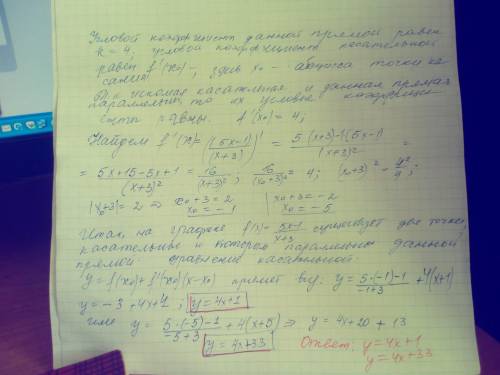 Угловой коэффициент данной прямой равен
k = 4. Угловой коэффициент касательной
равен f'(x₀) –, здесь x₀ – абсцисса точки ка
сания.
Т.к искомая касательная и данная прямая
параллельны, то их угловые коэффици-
енты равны. f'(x₀) = 4;
Найдем f'(x) = ((5x-1)/(x+3))' = (5·(x+3)-1(5x-1))/(x+3)² =
= (5x+15-5x+1)/(x+3)² = 16/(x+3)²; 16/(x₀+3)² = 4; (x₀+3)² = 4;
|x₀+3| = 2 ⇒ x₀+3 = 2 | x₀+3 = -2
x₀ = -1 | x₀ = -5
Итак, на графике f(x) = (5x-1)/(x+3) существует две точки,
касательные в которых параллельны данной
прямой. Уравнение касательной:
y = f(x₀) + f'(x₀)(x-x₀) примет вид: y = (5·(-1)-1)/(-1+3) + 4(x+1)
y = -3 + 4x+4; y = 4x+1
или y = (5·(-5)-1)/(-5+3) + 4(x+5) ⇒ y = 4x+20 + 13
y = 4x+33
Ответ: y = 4x+1
y = 4x+33